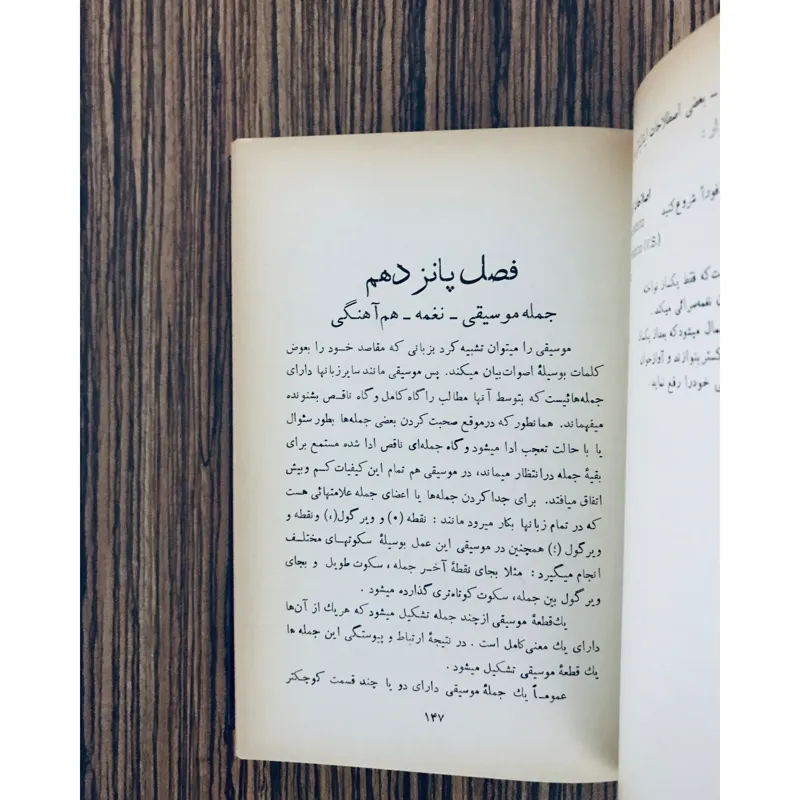 فصل پانزدهم
جمله موسیقی - نغمه - هم‌آهنگی
موسیقی را میتوان تشبیه کرد بزبانی که مقاصد خود را بعوض
کلمات بوسیلهٔ اصوات بیان میکند. پس موسیقی مانند سایر زبانها دارای
جمله‌هائیست که بتوسط آنها مطالب را گاه کامل و گاه ناقص بشنونده
میفهماند. همانطور که در موقع صحبت کردن بعضی جمله‌ها بطور سئوال
یا با حالت تعجب ادا میشود و گاه جمله‌ای ناقص ادا شده مستمع برای
بقیهٔ جمله در انتظار میماند، در موسیقی هم تمام این کیفیات کم و بیش
اتفاق میافتد. برای جدا کردن جمله‌ها یا اعضای جمله علامتهائی هست
که در تمام زبانها بکار میرود مانند: نقطه (•) و ویرگول (،) و نقطه و
ویرگول (؛) همچنین در موسیقی این عمل بوسیلهٔ سکوتهای مختلف
انجام میگیرد: مثلا بجای نقطهٔ آخر جمله، سکوت طویل و بجای
ویرگول بین جمله، سکوت کوتاه‌تری گذارده میشود.
یك قطعهٔ موسیقی از چند جمله تشکیل میشود که هر یك از آن‌ها
دارای یك معنی کامل است. در نتیجهٔ ارتباط و پیوستگی این جمله ها
یك قطعهٔ موسیقی تشکیل میشود.
عموماً یك جملهٔ موسیقی دارای دو یا چند قسمت کوچکتر
۱۴۷
- بعضی اصطلاحات
شروع کنید
(V.S.)
ست که فقط یکبار نوازنده
نغمه‌سرائی میکند.
میشود که بعد از یکبار
بنوازند و آوازخوان
خود را رفع نماید.